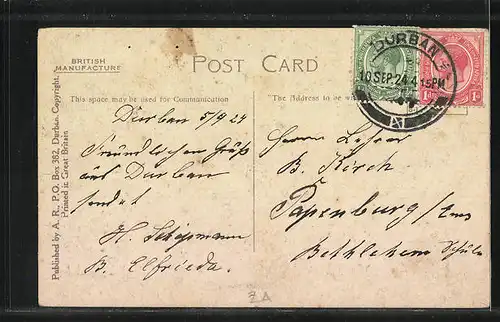 BRITISH
MANUFACTURE
POST CARD
This space may be used for Communication
The Address to be
DURBAN
10 SEP. 24 4 15PM
1d 1d
Published by A. R., P.O. Box 382, Durban. Copyright.
Printed in Great Britain
Durban 5/9 24
Freundlichen Gruß
aus Durban
sendet
H.
B. Elfrieda.
Herrn Lehrer
B. Kirch
Papenburg / Ems
Bethlehem Schule